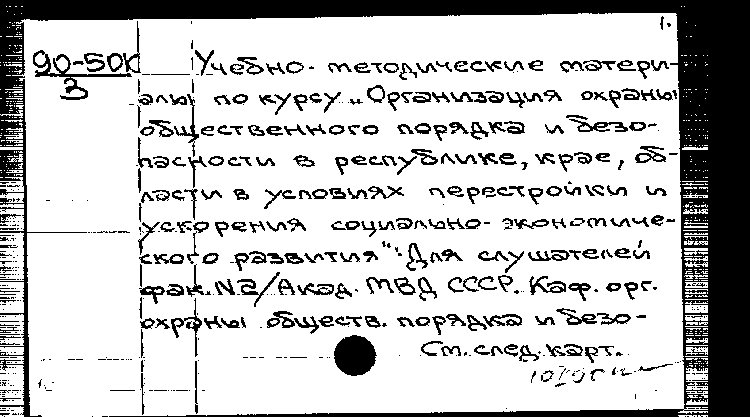 1.
90-50К
3
Учебно-методические матери-
алы по курсу „Организация охраны
общественного порядка и безо-
пасности в республике, крае, об-
ласти в условиях перестройки и
ускорения социально-экономиче-
ского развития": Для слушателей
фак. N2/Акад. МВД СССР. Каф. орг.
охраны обществ. порядка и безо-
См. след. карт.